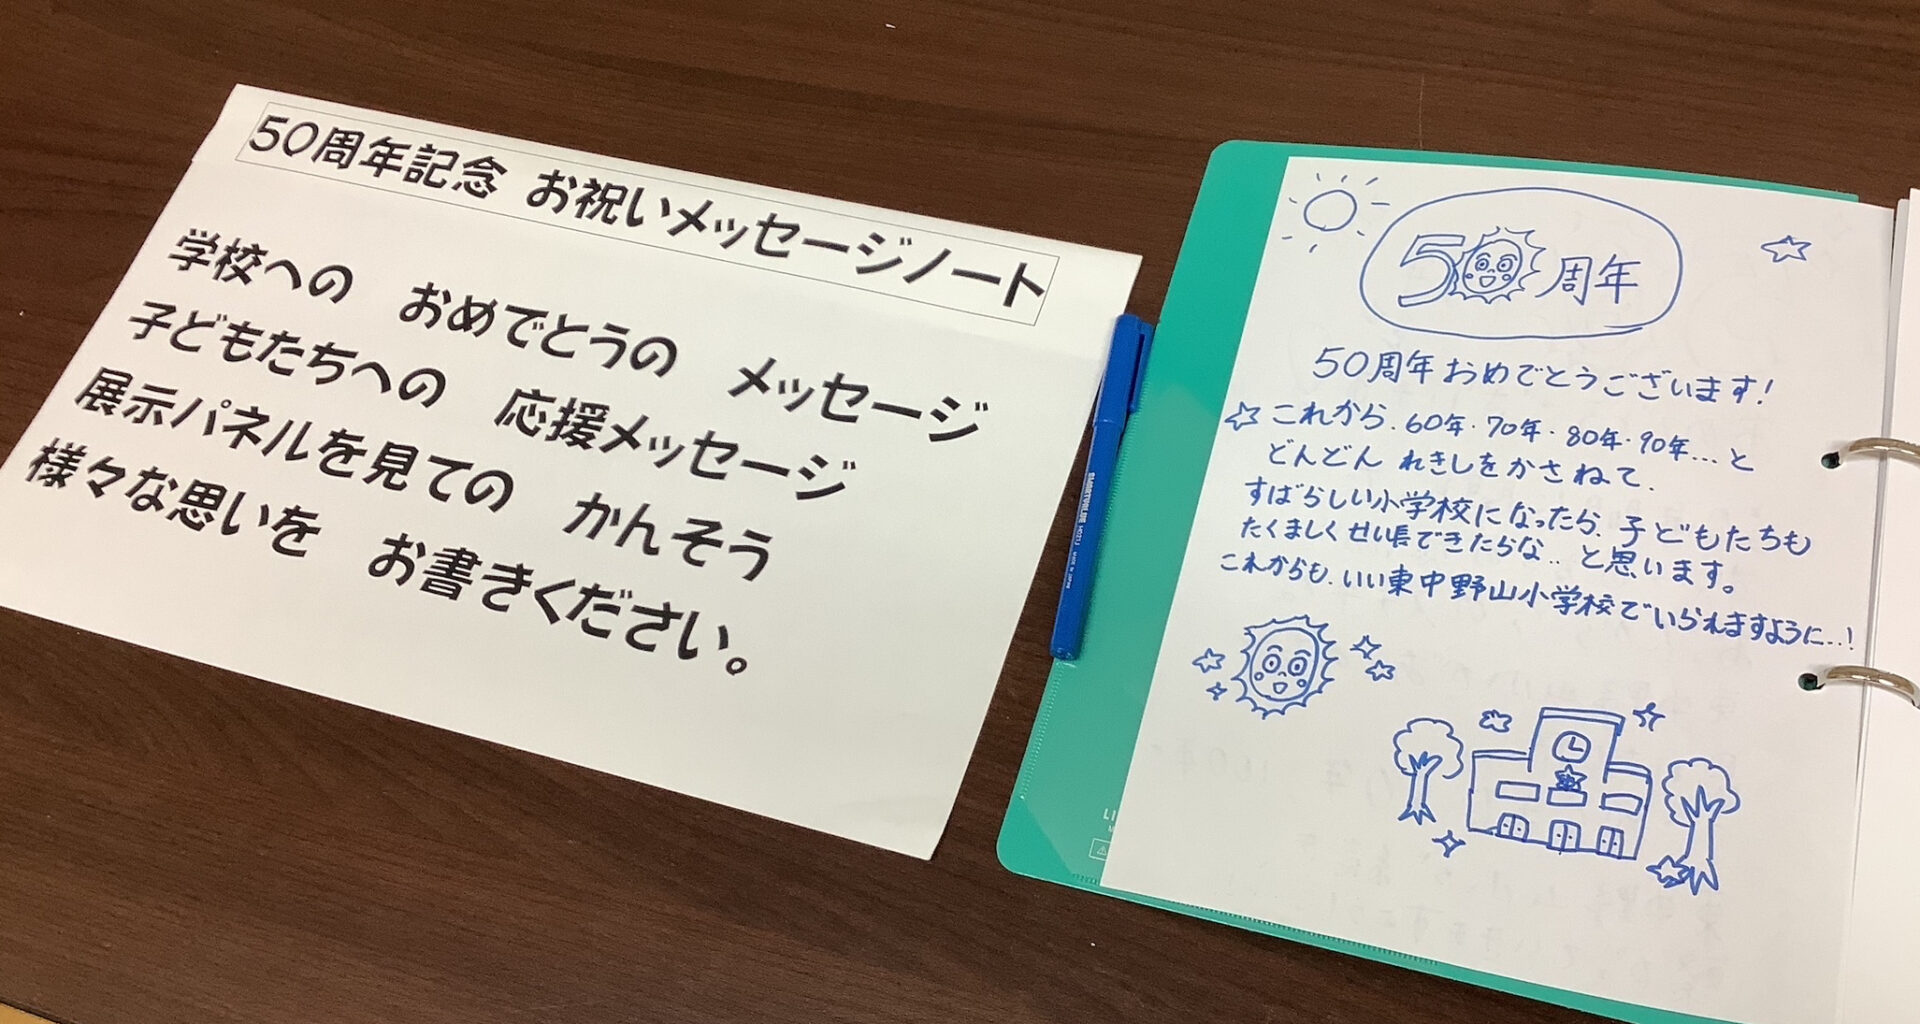 50周年記念 お祝いメッセージノート
学校への おめでとうの メッセージ
子どもたちへの 応援メッセージ
展示パネルを見ての かんそう
様々な思いを お書きください。
50周年
50周年おめでとうございます!
☆これから、60年・70年・80年・90年...と
どんどん れきしをかさねて、
すばらしい小学校になったら、子どもたちも
たくましくせい長できたらな..と思います。
これからも、いい東中野山小学校でいられますように...!